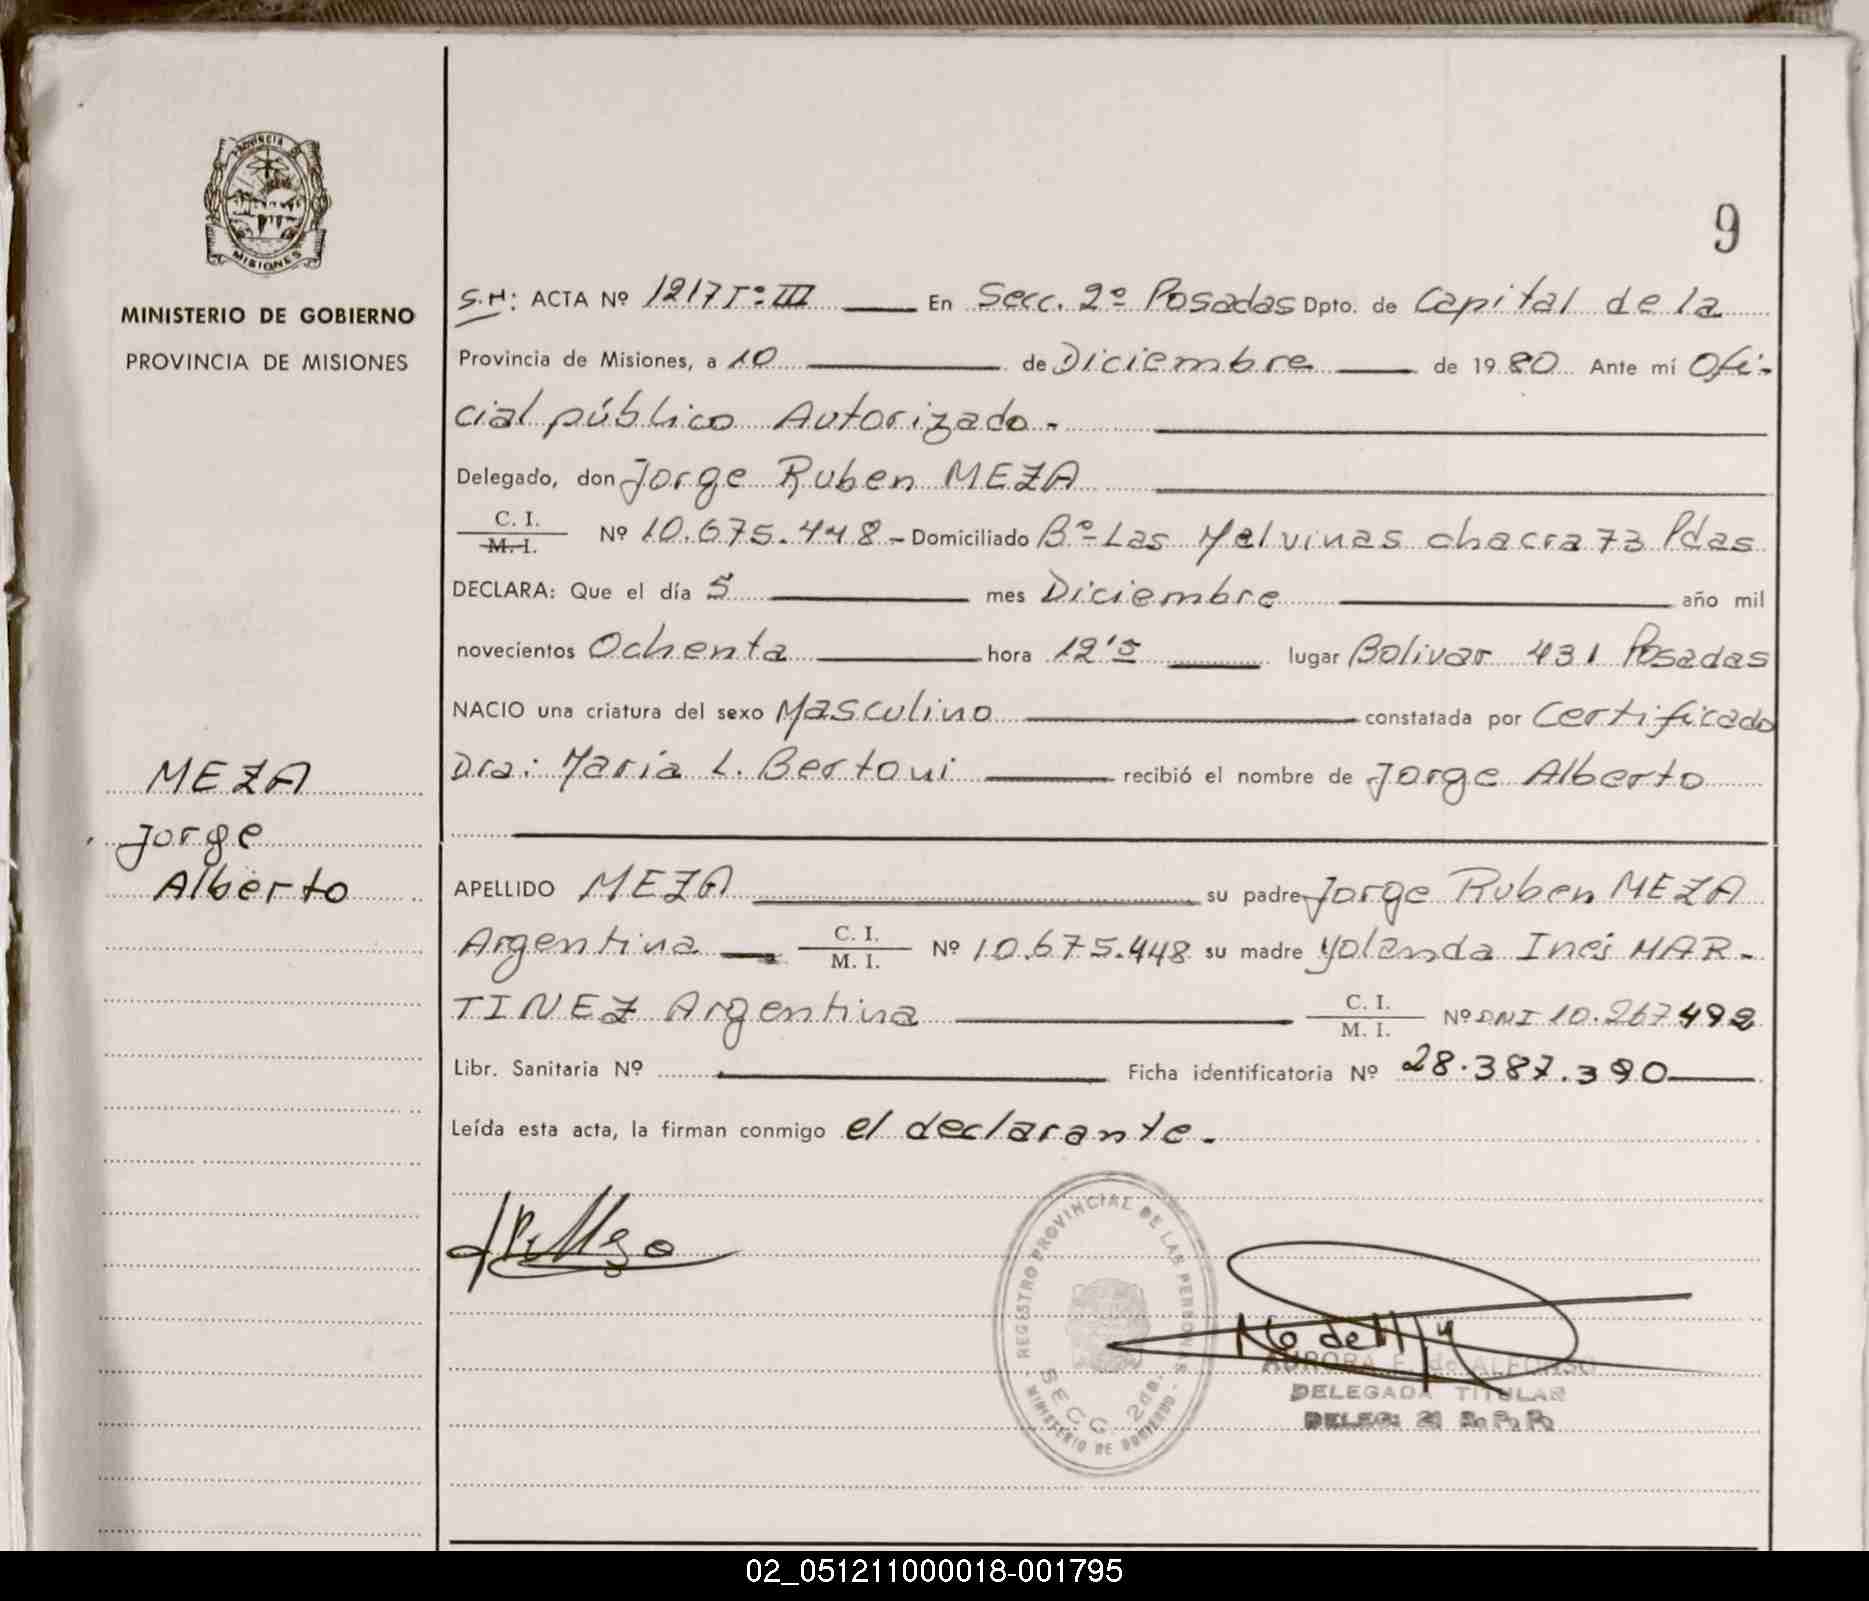 PROVINCIA DE
MISIONES
MINISTERIO DE GOBIERNO
PROVINCIA DE MISIONES
MEZA
Jorge
Alberto
9
S.H: ACTA Nº 1217 Tº III En Secc. 2º Posadas Dpto. de Capital de la
Provincia de Misiones, a 10 de Diciembre de 1980 Ante mí Ofi-
cial público Autorizado.-
Delegado, don Jorge Ruben MEZA
C. I.
M. I. Nº 10.675.448- Domiciliado Bº Las Malvinas chacra 73 Pdas
DECLARA: Que el día 5 mes Diciembre año mil
novecientos Ochenta hora 12'5 lugar Bolivar 431 Posadas
NACIO una criatura del sexo Masculino constatada por Certificado
Dra: Maria L. Bertoni recibió el nombre de Jorge Alberto
APELLIDO MEZA su padre Jorge Ruben MEZA
Argentina C. I.
M. I. Nº 10.675.448 su madre Yolanda Inés MAR-
TINEZ Argentina C. I.
M. I. Nº DNI 10.267492
Libr. Sanitaria Nº Ficha identificatoria Nº 28.387.390
Leída esta acta, la firman conmigo el declarante.-
REGISTRO PROVINCIAL DE LAS PERSONAS
SECC. 2da.
MINISTERIO DE GOBIERNO
AURORA F. de ALFONSO
DELEGADA TITULAR
02_051211000018-001795